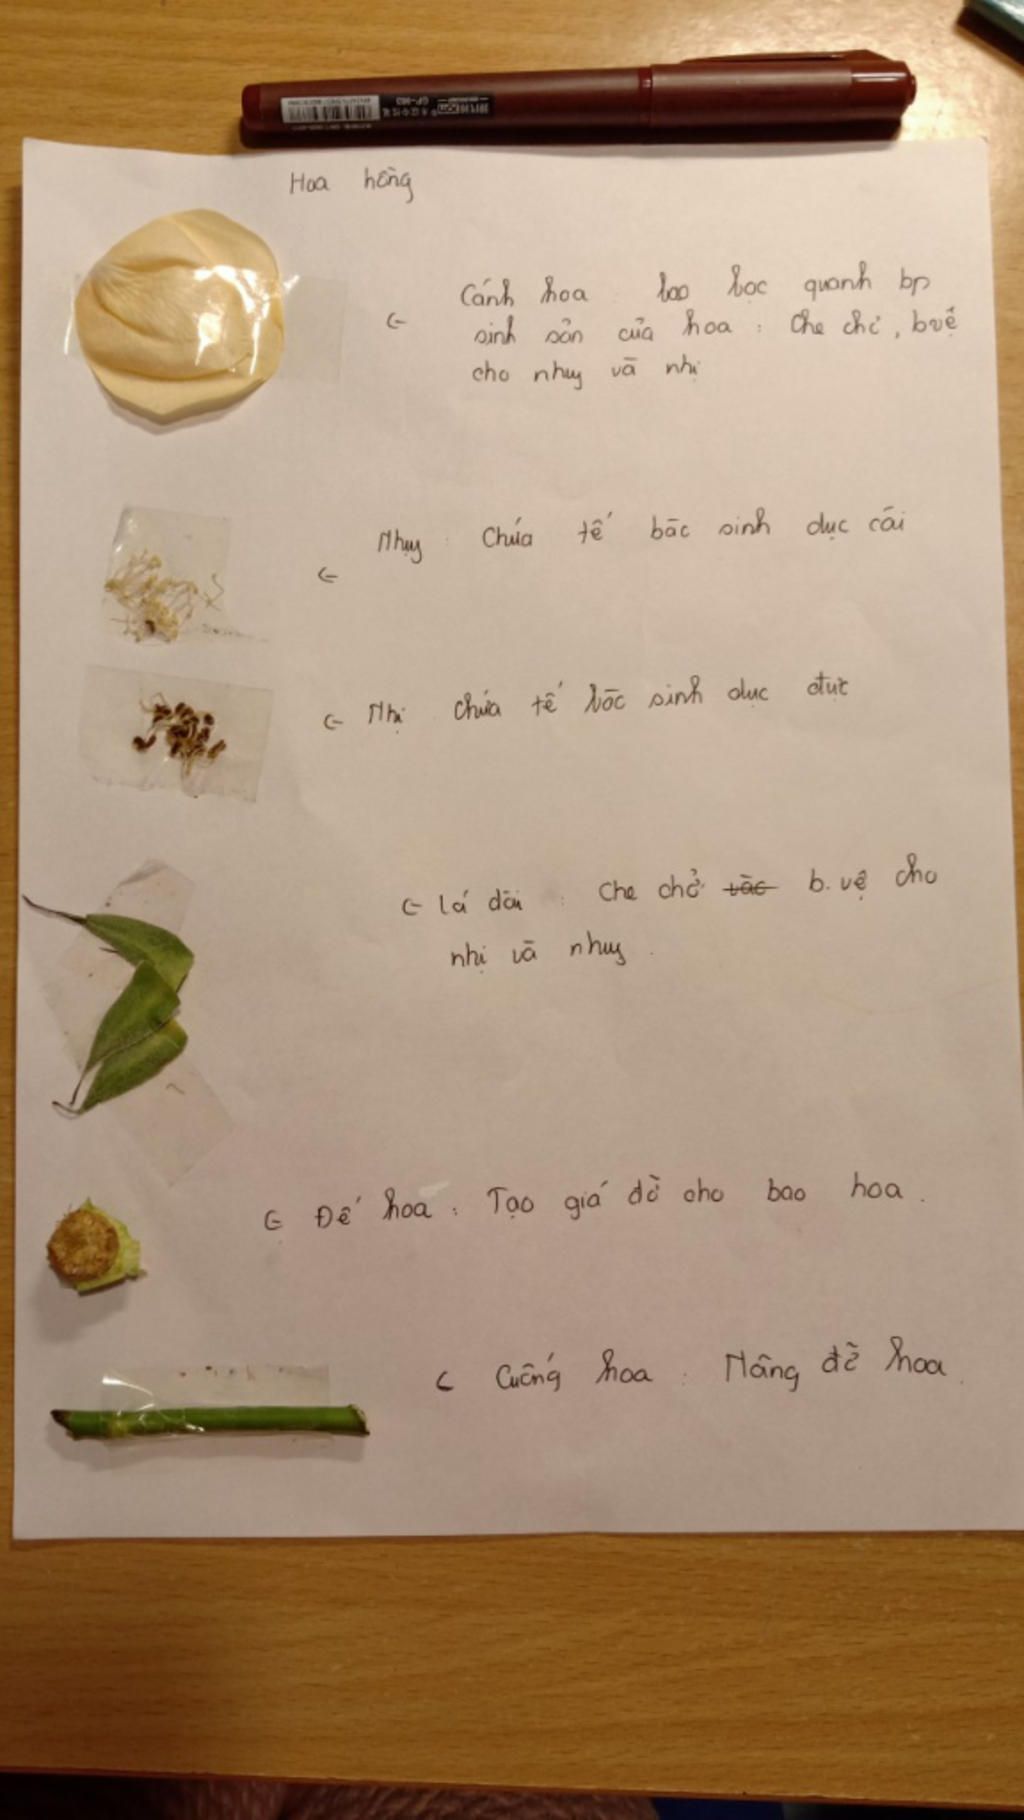 GP-380
Hoa hồng
← Cánh hoa : bao bọc quanh bp
sinh sản của hoa : Che chở, bvệ
cho nhuỵ và nhị
← Nhuỵ : Chứa tế bào sinh dục cái
← Nhị : chứa tế bào sinh dục đực
← lá đài : Che chở và b.vệ cho
nhị và nhuỵ .
← Đế hoa : Tạo giá đỡ cho bao hoa .
← Cuống hoa : Nâng đỡ hoa .